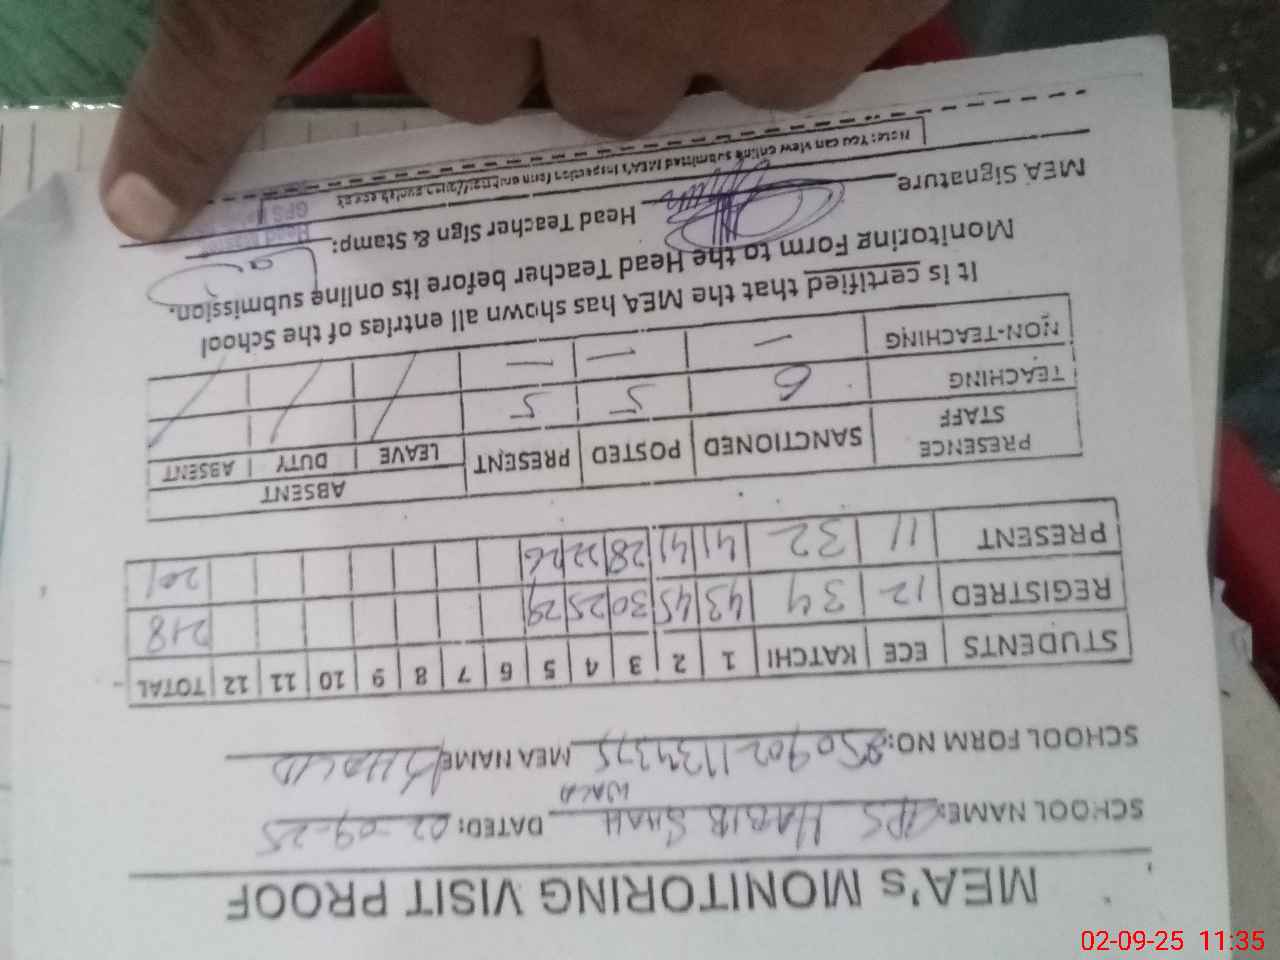 MEA's MONITORING VISIT PROOF
SCHOOL NAME: GPS HABIB SHAH WALA DATED: 02-09-25
SCHOOL FORM NO: 250902-1134375 MEA NAME KHALID
STUDENTS ECE KATCHI 1 2 3 4 5 6 7 8 9 10 11 12 TOTAL
REGISTRED 12 34 43 45 30 25 29 218
PRESENT 11 32 41 41 28 22 26 201
PRESENCE STAFF SANCTIONED POSTED PRESENT ABSENT
LEAVE DUTY ABSENT
TEACHING 6 5 5
NON-TEACHING — — —
It is certified that the MEA has shown all entries of the School
Monitoring Form to the Head Teacher before its online submission.
MEA Signature Head Teacher Sign & Stamp:
Head Master
GPS
Note: You can view online submitted MEA's inspection form on
02-09-25 11:35